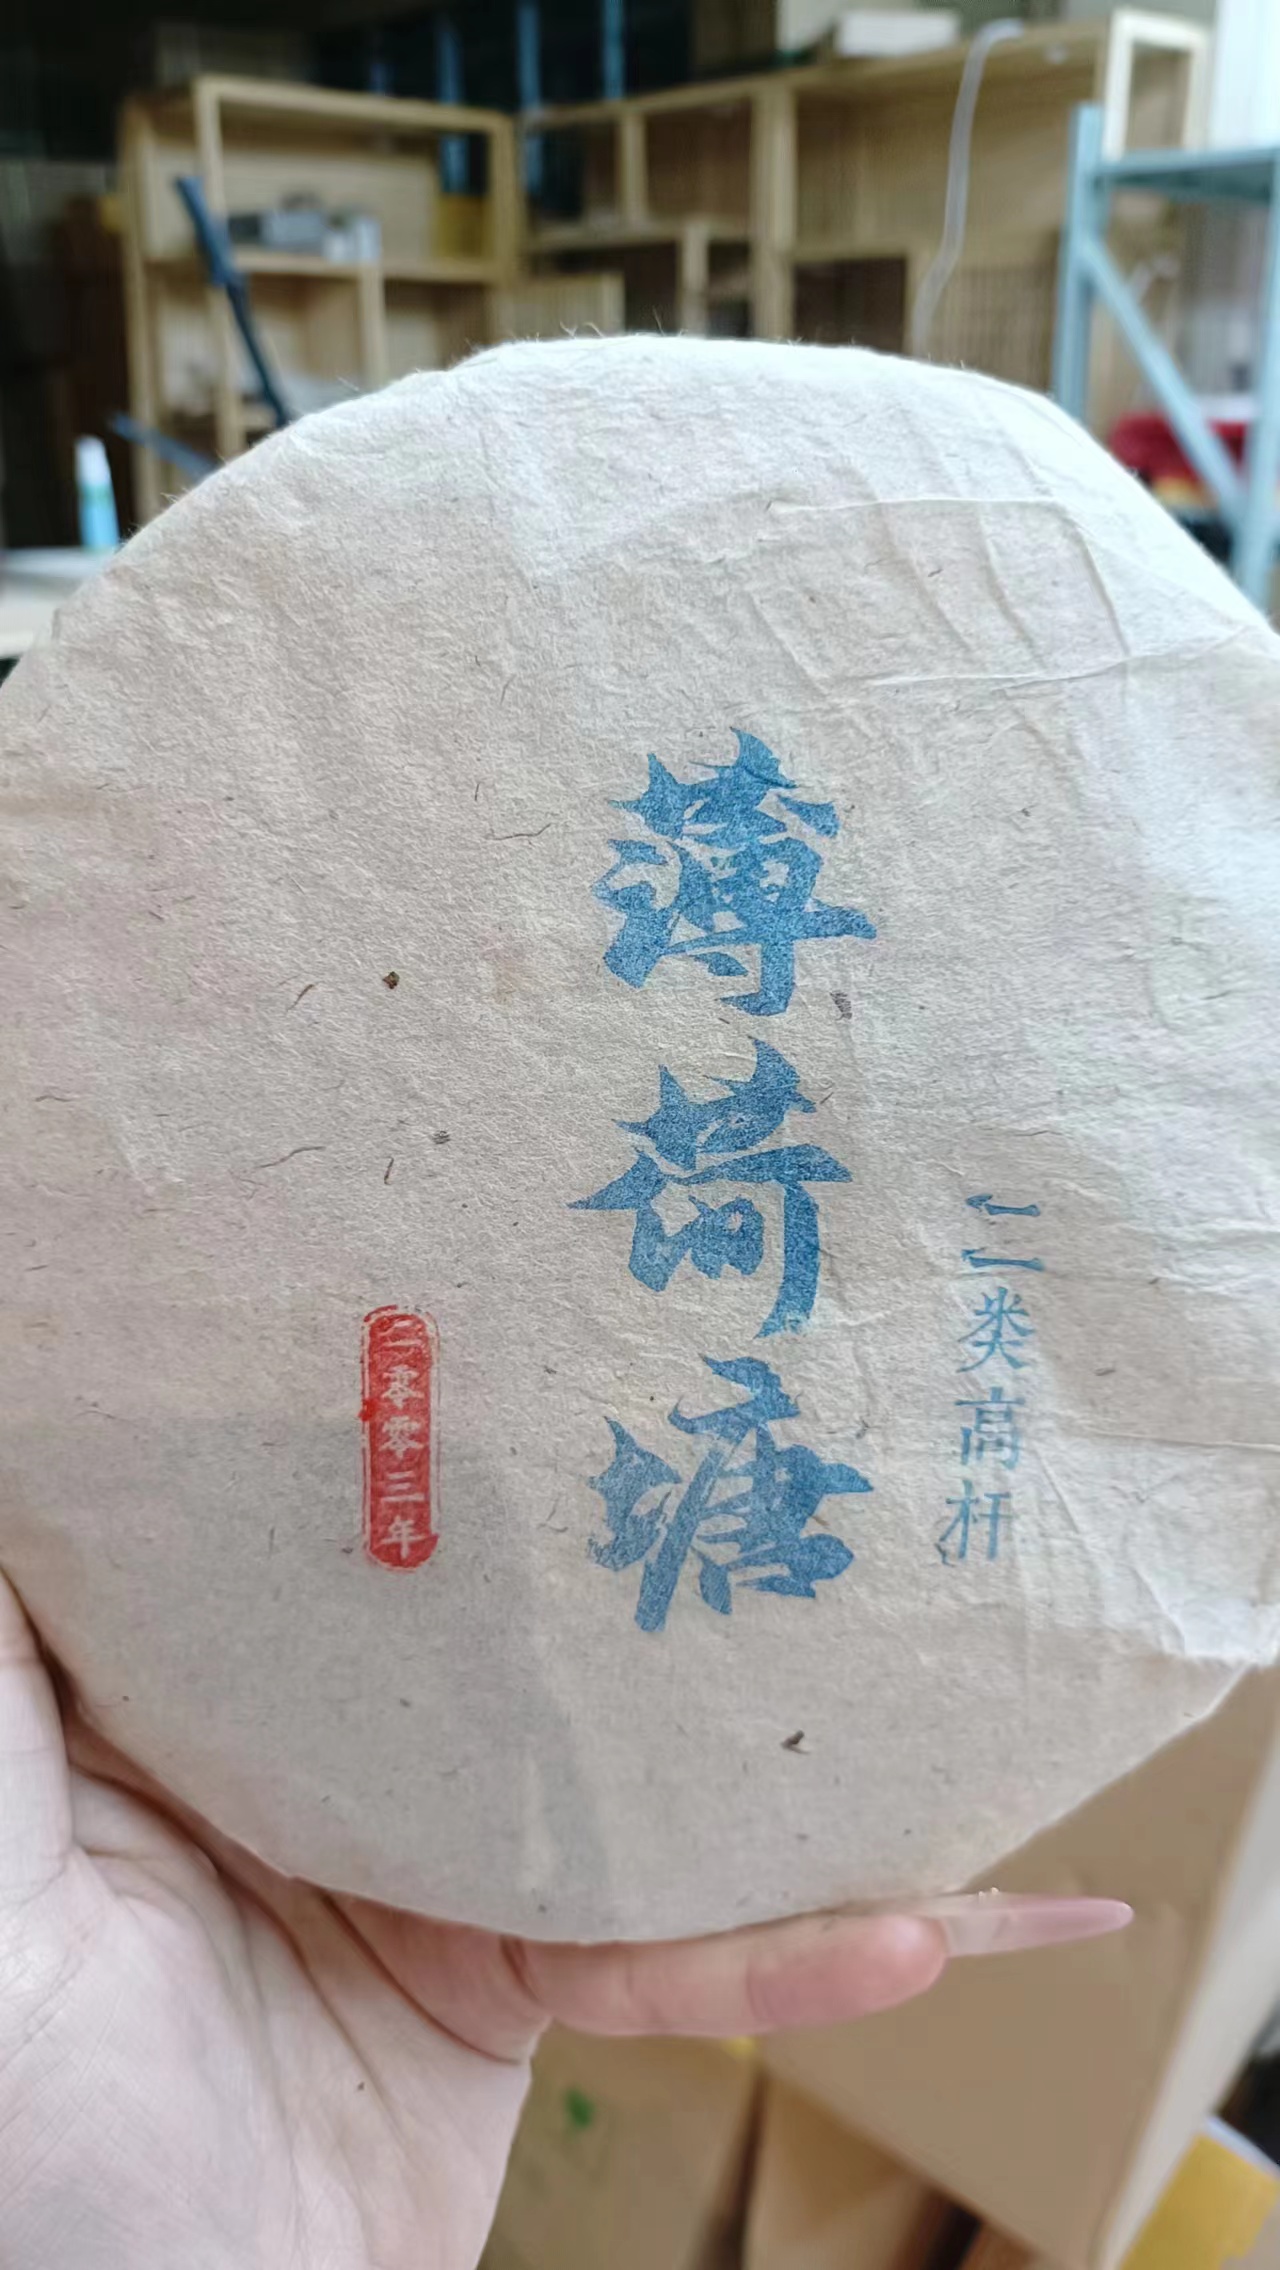 二类高杆
薄荷塘
二零零三年